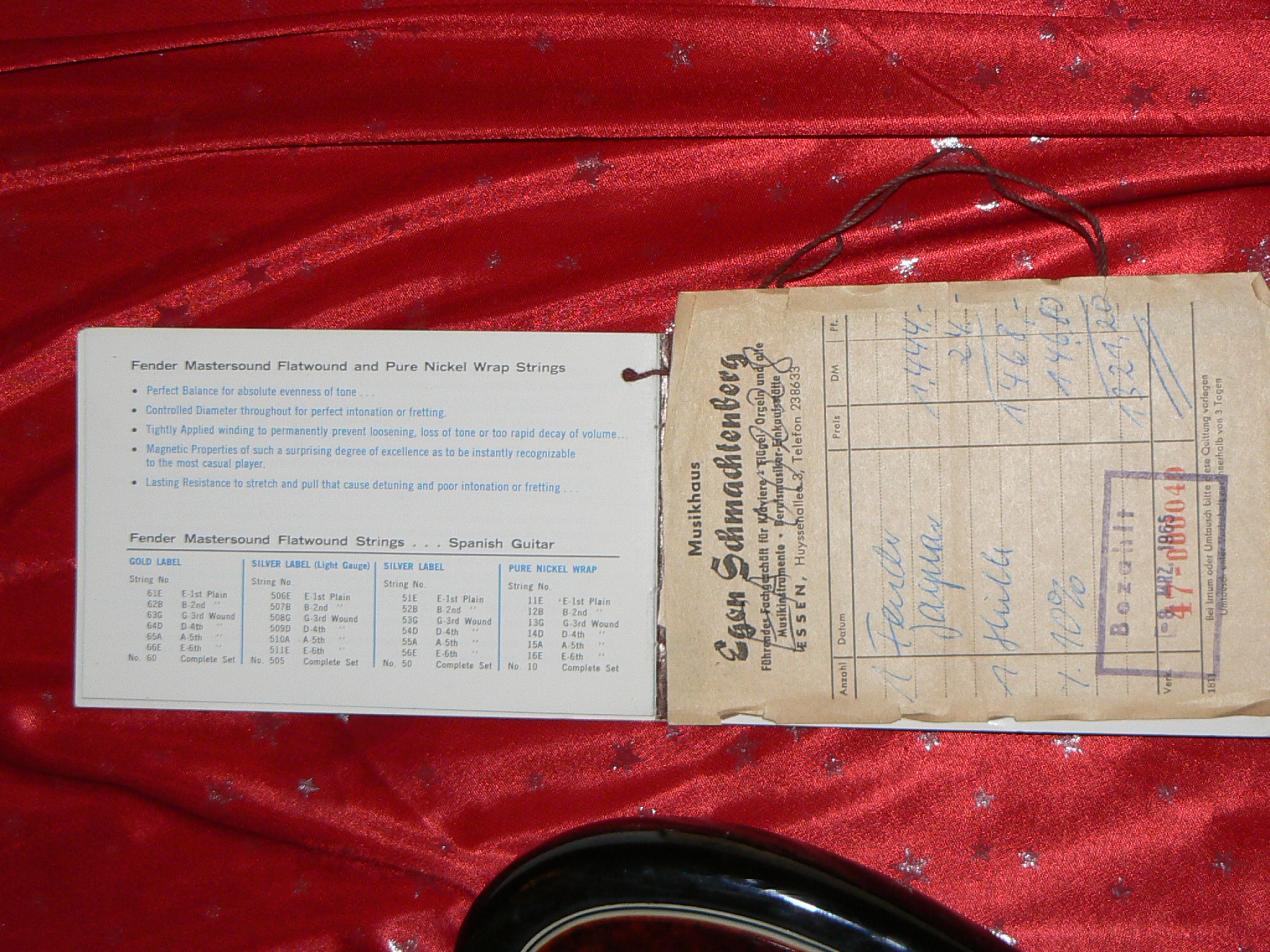 Fender Mastersound Flatwound and Pure Nickel Wrap Strings
• Perfect Balance for absolute evenness of tone . . .
• Controlled Diameter throughout for perfect intonation or fretting.
• Tightly Applied winding to permanently prevent loosening, loss of tone or too rapid decay of volume...
• Magnetic Properties of such a surprising degree of excellence as to be instantly recognizable
to the most casual player.
• Lasting Resistance to stretch and pull that cause detuning and poor intonation or fretting . . .
Fender Mastersound Flatwound Strings . . . Spanish Guitar
GOLD LABEL
String No.
61E E-1st Plain
62B B-2nd "
63G G-3rd Wound
64D D-4th "
65A A-5th "
66E E-6th "
No. 60 Complete Set
SILVER LABEL (Light Gauge)
String No.
506E E-1st Plain
507B B-2nd "
508G G-3rd Wound
509D D-4th "
510A A-5th "
511E E-6th "
No. 505 Complete Set
SILVER LABEL
String No.
51E E-1st Plain
52B B-2nd "
53G G-3rd Wound
54D D-4th "
55A A-5th "
56E E-6th "
No. 50 Complete Set
PURE NICKEL WRAP
String No.
11E E-1st Plain
12B B-2nd "
13G G-3rd Wound
14D D-4th "
15A A-5th "
16E E-6th "
No. 10 Complete Set
Musikhaus
Egon Schmachtenberg
Führendes Fachgeschäft für Klaviere Flügel Orgeln und alle
Musikinstrumente • Berufsmusiker-Einkaufsstätte
ESSEN, Huyssenallee 3, Telefon 238633
Anzahl Datum Preis DM Pf.
1 Fender 1,444.-
Jaguar 24.-
1 Hülle 1468.-
10% 146,80
1321,20
Bezahlt
-9. MRZ. 1965
Verk.
47-000040
1811 Bei Irrtum oder Umtausch bitte diese Quittung vorlegen
Umtausch nur innerhalb von 3 Tagen